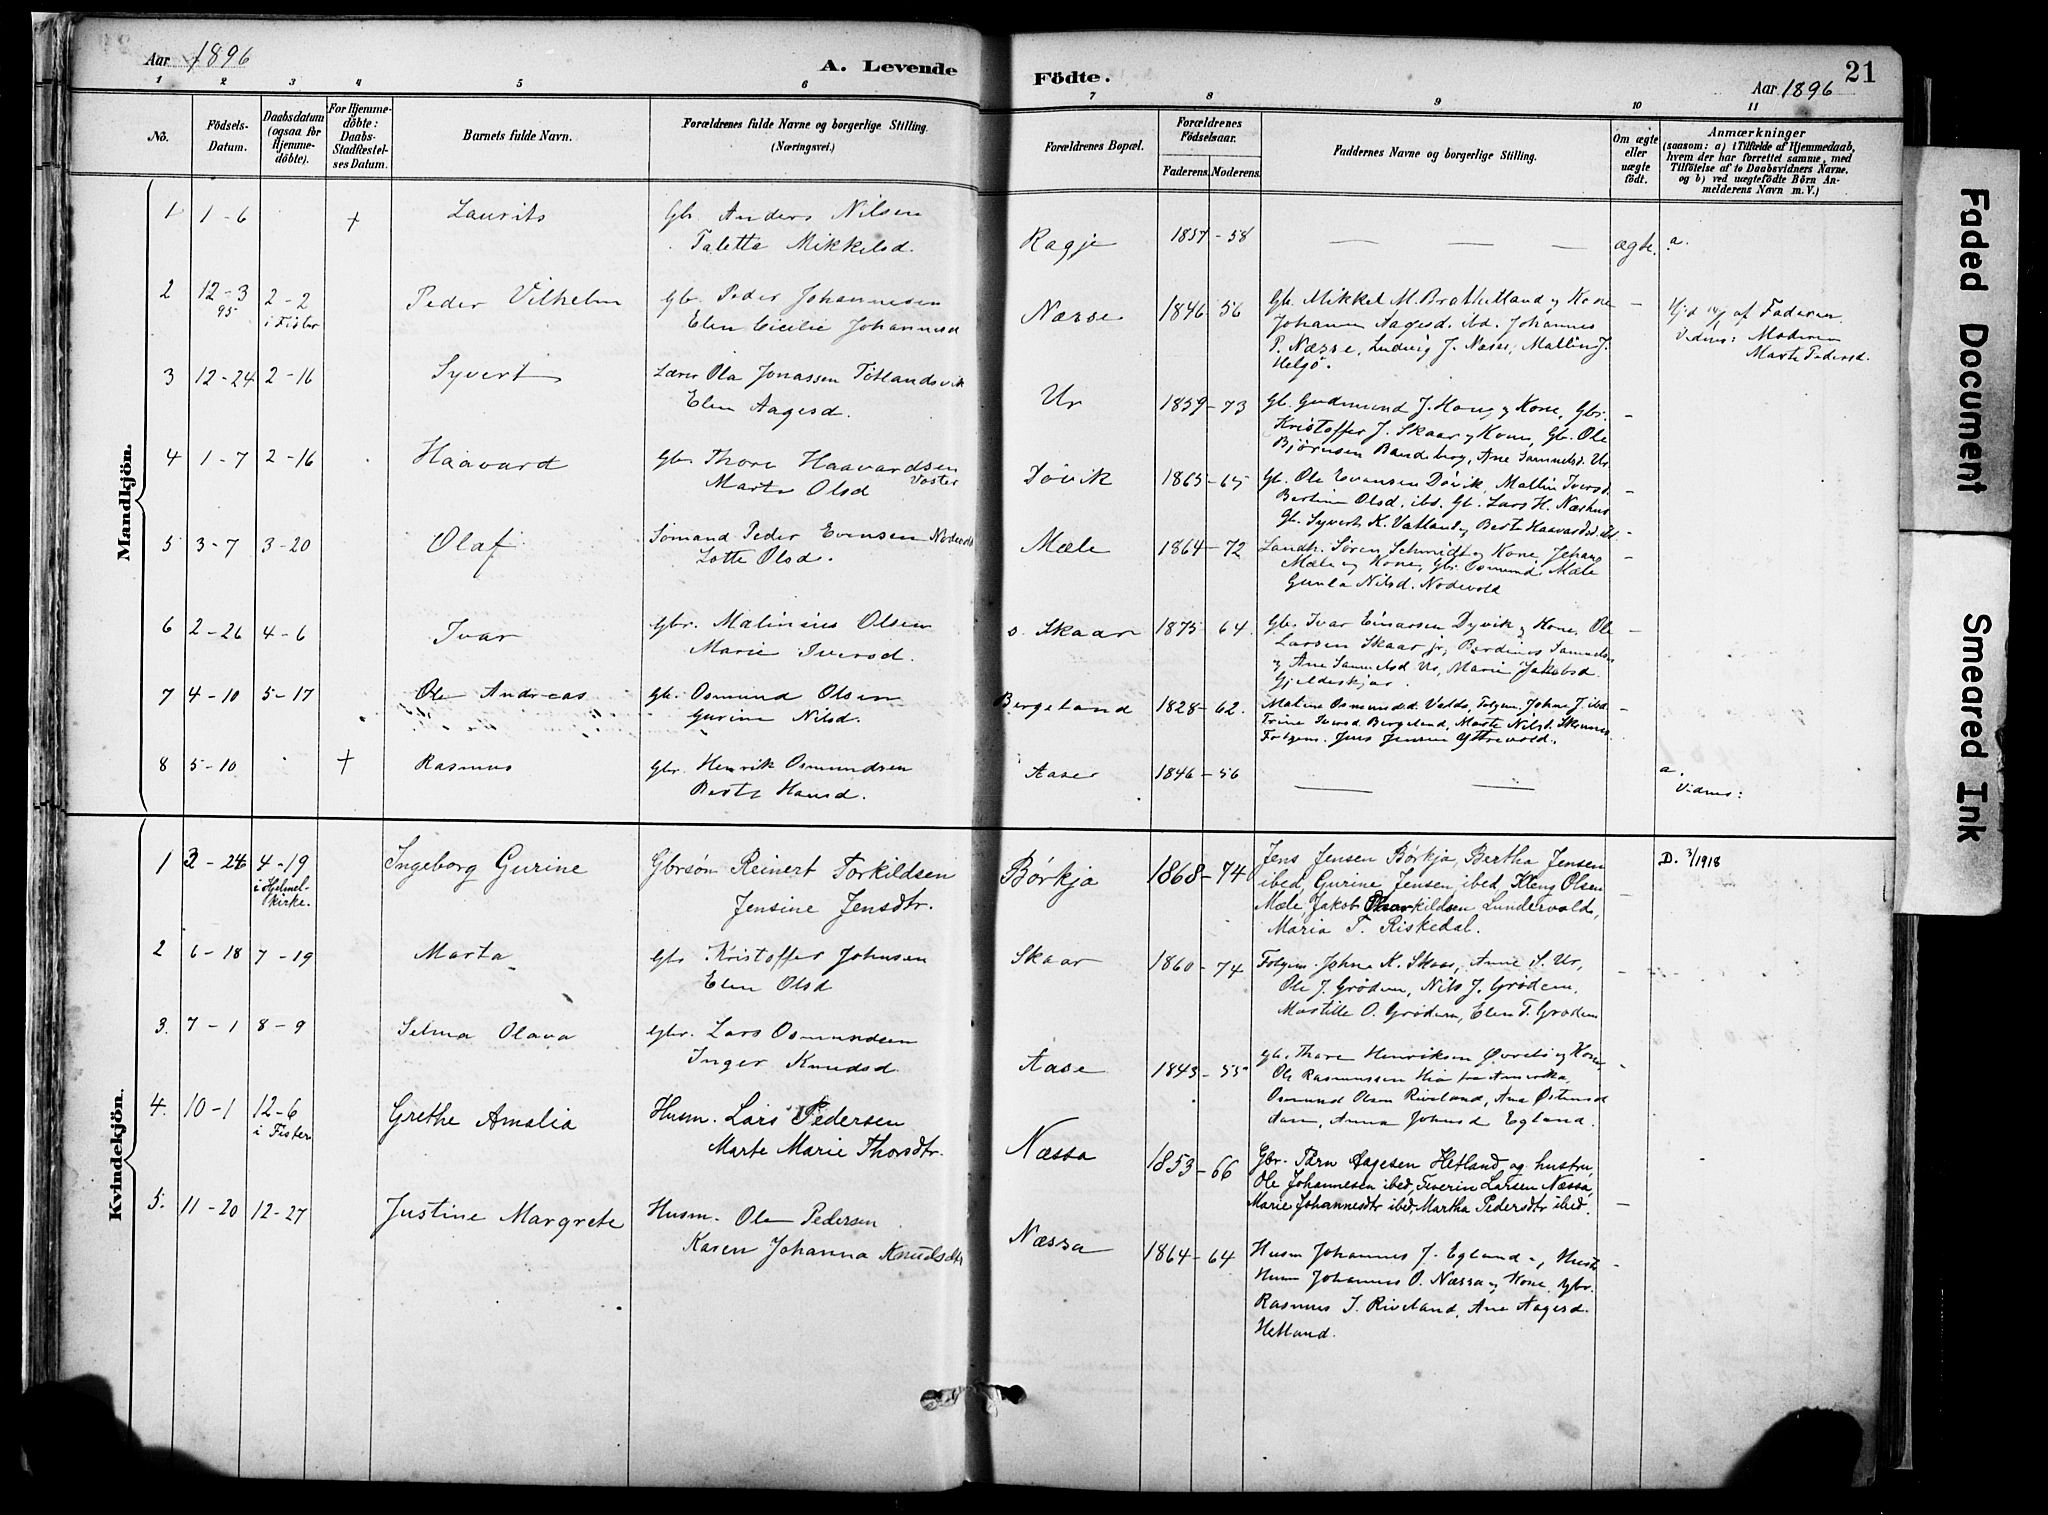 Aar 1896
A. Levende
Födte.
Aar 1896
21
1 2 3 4 5 6 7 8 9 10 11
No.
Födsels-Datum.
Daabsdatum (ogsaa for Hjemme-döbte).
For Hjemme-döbte: Daabs-Stadfæstel-ses Datum.
Barnets fulde Navn.
Forældrenes fulde Navne og borgerlige Stilling. (Næringsvei.)
Forældrenes Bopæl.
Forældrenes Födselsaar.
Faderens. Moderens.
Faddernes Navne og borgerlige Stilling.
Om ægte eller uægte födt.
Anmærkninger
(saasom: a) i Tilfælde af Hjemmedaab,
hvem der har forrettet samme, med
Tilföielse af to Daabsvidners Navne.
og b) ved uægtefödte Börn An-
melderens Navn m. V.)
Mandkjön.
1 1-6 + Laurits Gbr. Anders Nilsen
Taletta Mikkelsd. Ragje 1857-58 — — ægte. a.
2 12-3 95 2-2 i Fister Peder Vilhelm Gbr. Peder Johannesen
Elen Cicilie Johannesd Næsse 1846-56 Gb. Mikkel M. Brathetland og Kone
Johanna Aagesd. ibd. Johannes
P. Næsse, Ludvig J. Næsse, Mallin J.
Helgö. — af Faderen.
Vidner: Moderen
Marte Pedersd.
3 12-24 2-16 Syvert Lærer Ola Jonassen Töllandsvik
Elen Aagesd. Ur 1859-73 Gb. Gudmund J. Houg og Kone, Gbr.
Kristoffer J. Skaar og Kone, Gb. Ole
Bjørnsen Bandeberg, Ane Samuelsd. Ur —
4 1-7 2-16 Haavard Gbr. Thore Haavardsen
Marta Olsd Voster Døvik 1865-65 Gb. Ole Evansen Døvik, Mallin Iversd.
Bertine Olsd, ibd. Gb. Lars H. Næshus
Gb. Syvert K. Vatland og Berte Haavardsd. ibd —
5 3-7 3-20 Olaf Sömand Peder Evensen Nodevold
Lotte Olsd. Mæle 1864-72 Landh. Sören Schmidt og Kone, Johan
Mæle og Kone, Gbr. Osmund Mæle
Gunla Nilsd. Nodevold —
6 2-26 4-6 Ivar Gbr. Malinius Olsen
Marie Iversd. s. Skaar 1875-64. Gb. Ivar Einarsen Dyvik og Kone, Ole
Larsen Skaar jr, Berdines Samuelsen
og Ane Samuelsd Ur, Marie Jakobsd.
Gjeldeskjar. —
7 4-10 5-17 Ole Andreas Gb. Osmund Olsen
Gurine Nilsd. Bergeland 1828-62. Maline Osmundsd. Valds, Folgem. Johne J. ibd.
Trine Iversd. Bergeland, Marte Nilsd.
Folgem. Jens Jensen Yttrevold. —
8 5-10 + Rasmus Gbr. Henrik Osmundsen
Berte Hansd. Aase 1846-56 — — a.
Vidner:
Kvindekjön.
1 2-26 4-19 i Hjelmel-kirke. Ingeborg Gurine Gbrsön Reinert Torkildsen
Jensine Jensdtr. Börkja 1868-74 Jens Jensen Börkja, Bertha Jensen
ibed, Gurine Jensen, ibed, Kleng Olsen
Mæle, Jakob Thorkildsen Lundervold,
Maria T. Riskedal. — D. 3/1918
2 6-18 7-19 Marta Gbr Kristoffer Johnsen
Elen Olsd Skaar 1860-74 Folgem. John K. Skaar, Anne S. Ur,
Ole J. Grödem, Nils J. Grödem,
Mastille O. Grödem, Elen T. Grödem —
3. 7-1 8-9 Selma Olava Gbr. Lars Osmundsen
Inger Knudsd. Aase 1843-55 Gb. Thore Henriksen Övretö og Kone
Ole Rasmussen Hiö fra Amerika,
Osmund Olsen Riveland, Ane Östensd
Aase, Anna Johnsd Egland. —
4. 10-1 12-6 i Fister Grethe Amalia Husm. Lars Pedersen
Marte Marie Thorsdtr. Næssa 1853-66 Gbr. Tørn Aagesen Hetland og hustru,
Ole Johannesen ibed, Severin Larsen Næssa,
Marie Johannesdtr ibed, Martha Pedersdtr ibed. —
5. 11-20 12-27 Justine Margrete Husm. Ole Pedersen
Karen Johanna Knudsdtr Næssa 1864-64 Husm Johannes J. Egland,
Husm Johannes O. Næssa og Kone, Gbr.
Rasmus I. Riveland, Ane Aagesd.
Hetland. —
Faded Document
Smeared Ink